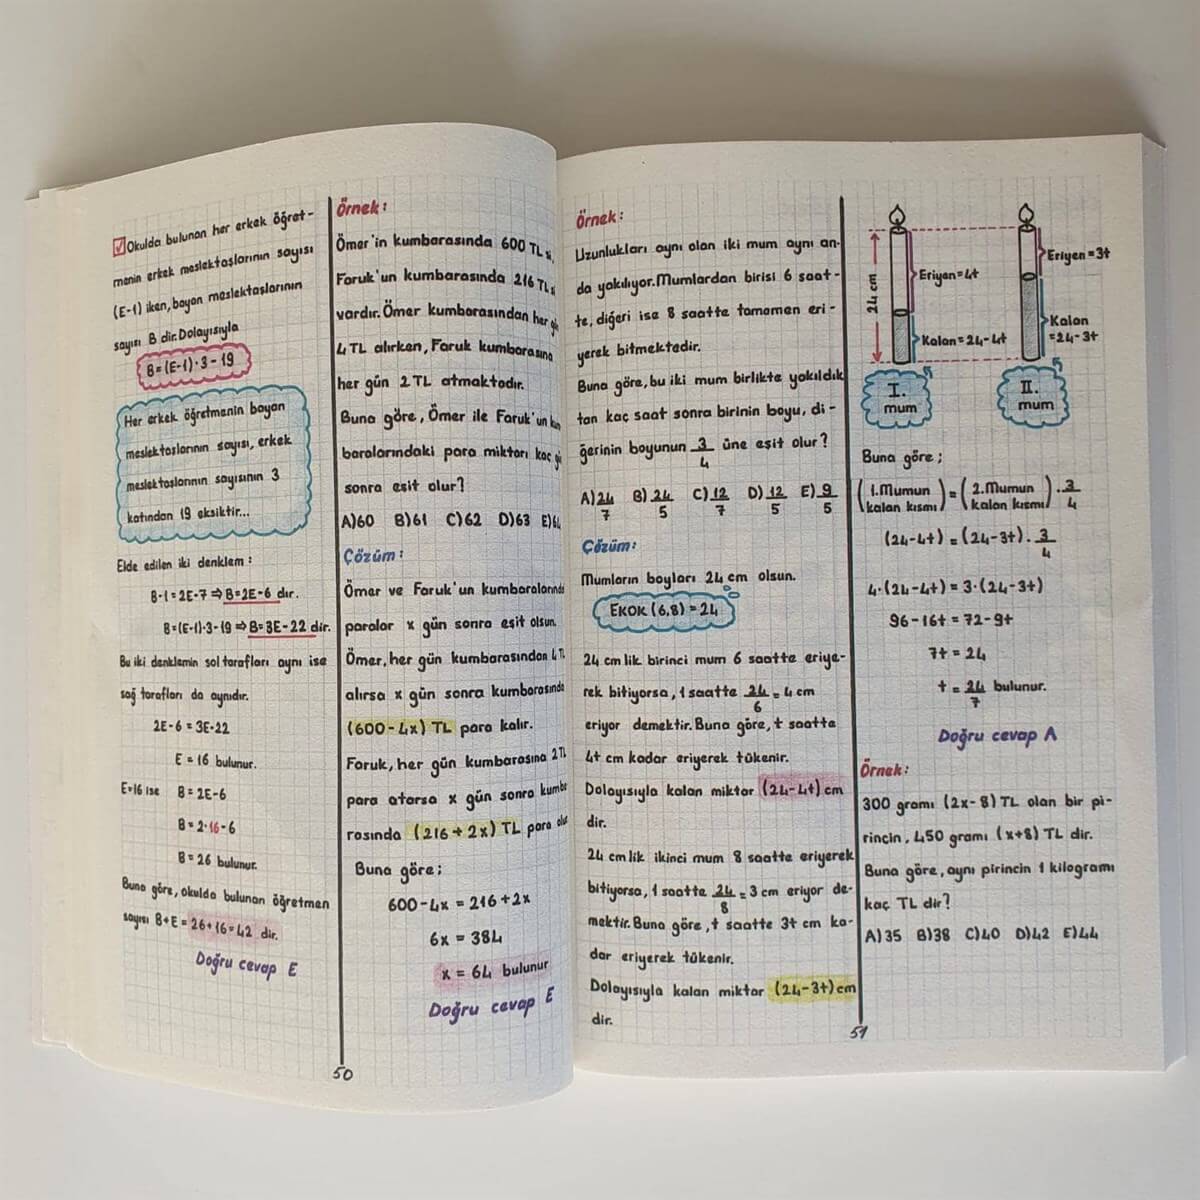 Okulda bulunan her erkek öğret-
menin erkek meslektaşlarının sayısı
(E-1) iken, bayan meslektaşlarının
sayısı B dir. Dolayısıyla
B=(E-1)·3-19
Her erkek öğretmenin bayan
meslektaşlarının sayısı, erkek
meslektaşlarının sayısının 3
katından 19 eksiktir...
Elde edilen iki denklem:
B-1=2E-7⇒B=2E-6 dır.
B=(E-1)·3-19⇒B=3E-22 dir.
Bu iki denklemin sol tarafları aynı ise
sağ tarafları da aynıdır.
2E-6=3E-22
E=16 bulunur.
E=16 ise B=2E-6
B=2·16-6
B=26 bulunur.
Buna göre, okulda bulunan öğretmen
sayısı B+E=26+16=42 dir.
Doğru cevap E
50
Örnek:
Ömer'in kumbarasında 600 TL si,
Faruk'un kumbarasında 216 TL si
vardır. Ömer kumbarasından her
4 TL alırken, Faruk kumbarasına
her gün 2 TL atmaktadır.
Buna göre, Ömer ile Faruk'un
baralarındaki para miktarı kaç
sonra eşit olur?
A)60 B)61 C)62 D)63 E)64
Çözüm:
Ömer ve Faruk'un kumbaralarında
paralar x gün sonra eşit olsun.
Ömer, her gün kumbarasından 4 TL
alırsa x gün sonra kumbarasında
(600-4x) TL para kalır.
Faruk, her gün kumbarasına 2 TL
para atarsa x gün sonra kumba
rasında (216+2x) TL para olur
Buna göre;
600-4x=216+2x
6x=384
x=64 bulunur
Doğru cevap E
Örnek:
Uzunlukları aynı olan iki mum aynı an-
da yakılıyor. Mumlardan birisi 6 saat-
te, diğeri ise 8 saatte tamamen eri-
yerek bitmektedir.
Buna göre, bu iki mum birlikte yakıldık
tan kaç saat sonra birinin boyu, di-
ğerinin boyunun 3/4 üne eşit olur?
A)24/7 B)24/5 C)12/7 D)12/5 E)9/5
Çözüm:
Mumların boyları 24 cm olsun.
EKOK (6,8)=24
24 cm lik birinci mum 6 saatte eriye-
rek bitiyorsa, 1 saatte 24/6=4 cm
eriyor demektir. Buna göre, t saatte
4t cm kadar eriyerek tükenir.
Dolayısıyla kalan miktar (24-4t) cm
dir.
24 cm lik ikinci mum 8 saatte eriyerek
bitiyorsa, 1 saatte 24/8=3 cm eriyor de-
mektir. Buna göre, t saatte 3t cm ka-
dar eriyerek tükenir.
Dolayısıyla kalan miktar (24-3t) cm
dir.
24 cm
Eriyen=4t
Kalan=24-4t
I. mum
Eriyen=3t
Kalan
=24-3t
II. mum
Buna göre;
(1.Mumun kalan kısmı)=(2.Mumun kalan kısmı)·3/4
(24-4t)=(24-3t)·3/4
4·(24-4t)=3·(24-3t)
96-16t=72-9t
7t=24
t=24/7 bulunur.
Doğru cevap A
Örnek:
300 gramı (2x-8) TL olan bir pi-
rincin, 450 gramı (x+8) TL dir.
Buna göre, aynı pirincin 1 kilogramı
kaç TL dir?
A)35 B)38 C)40 D)42 E)44
51